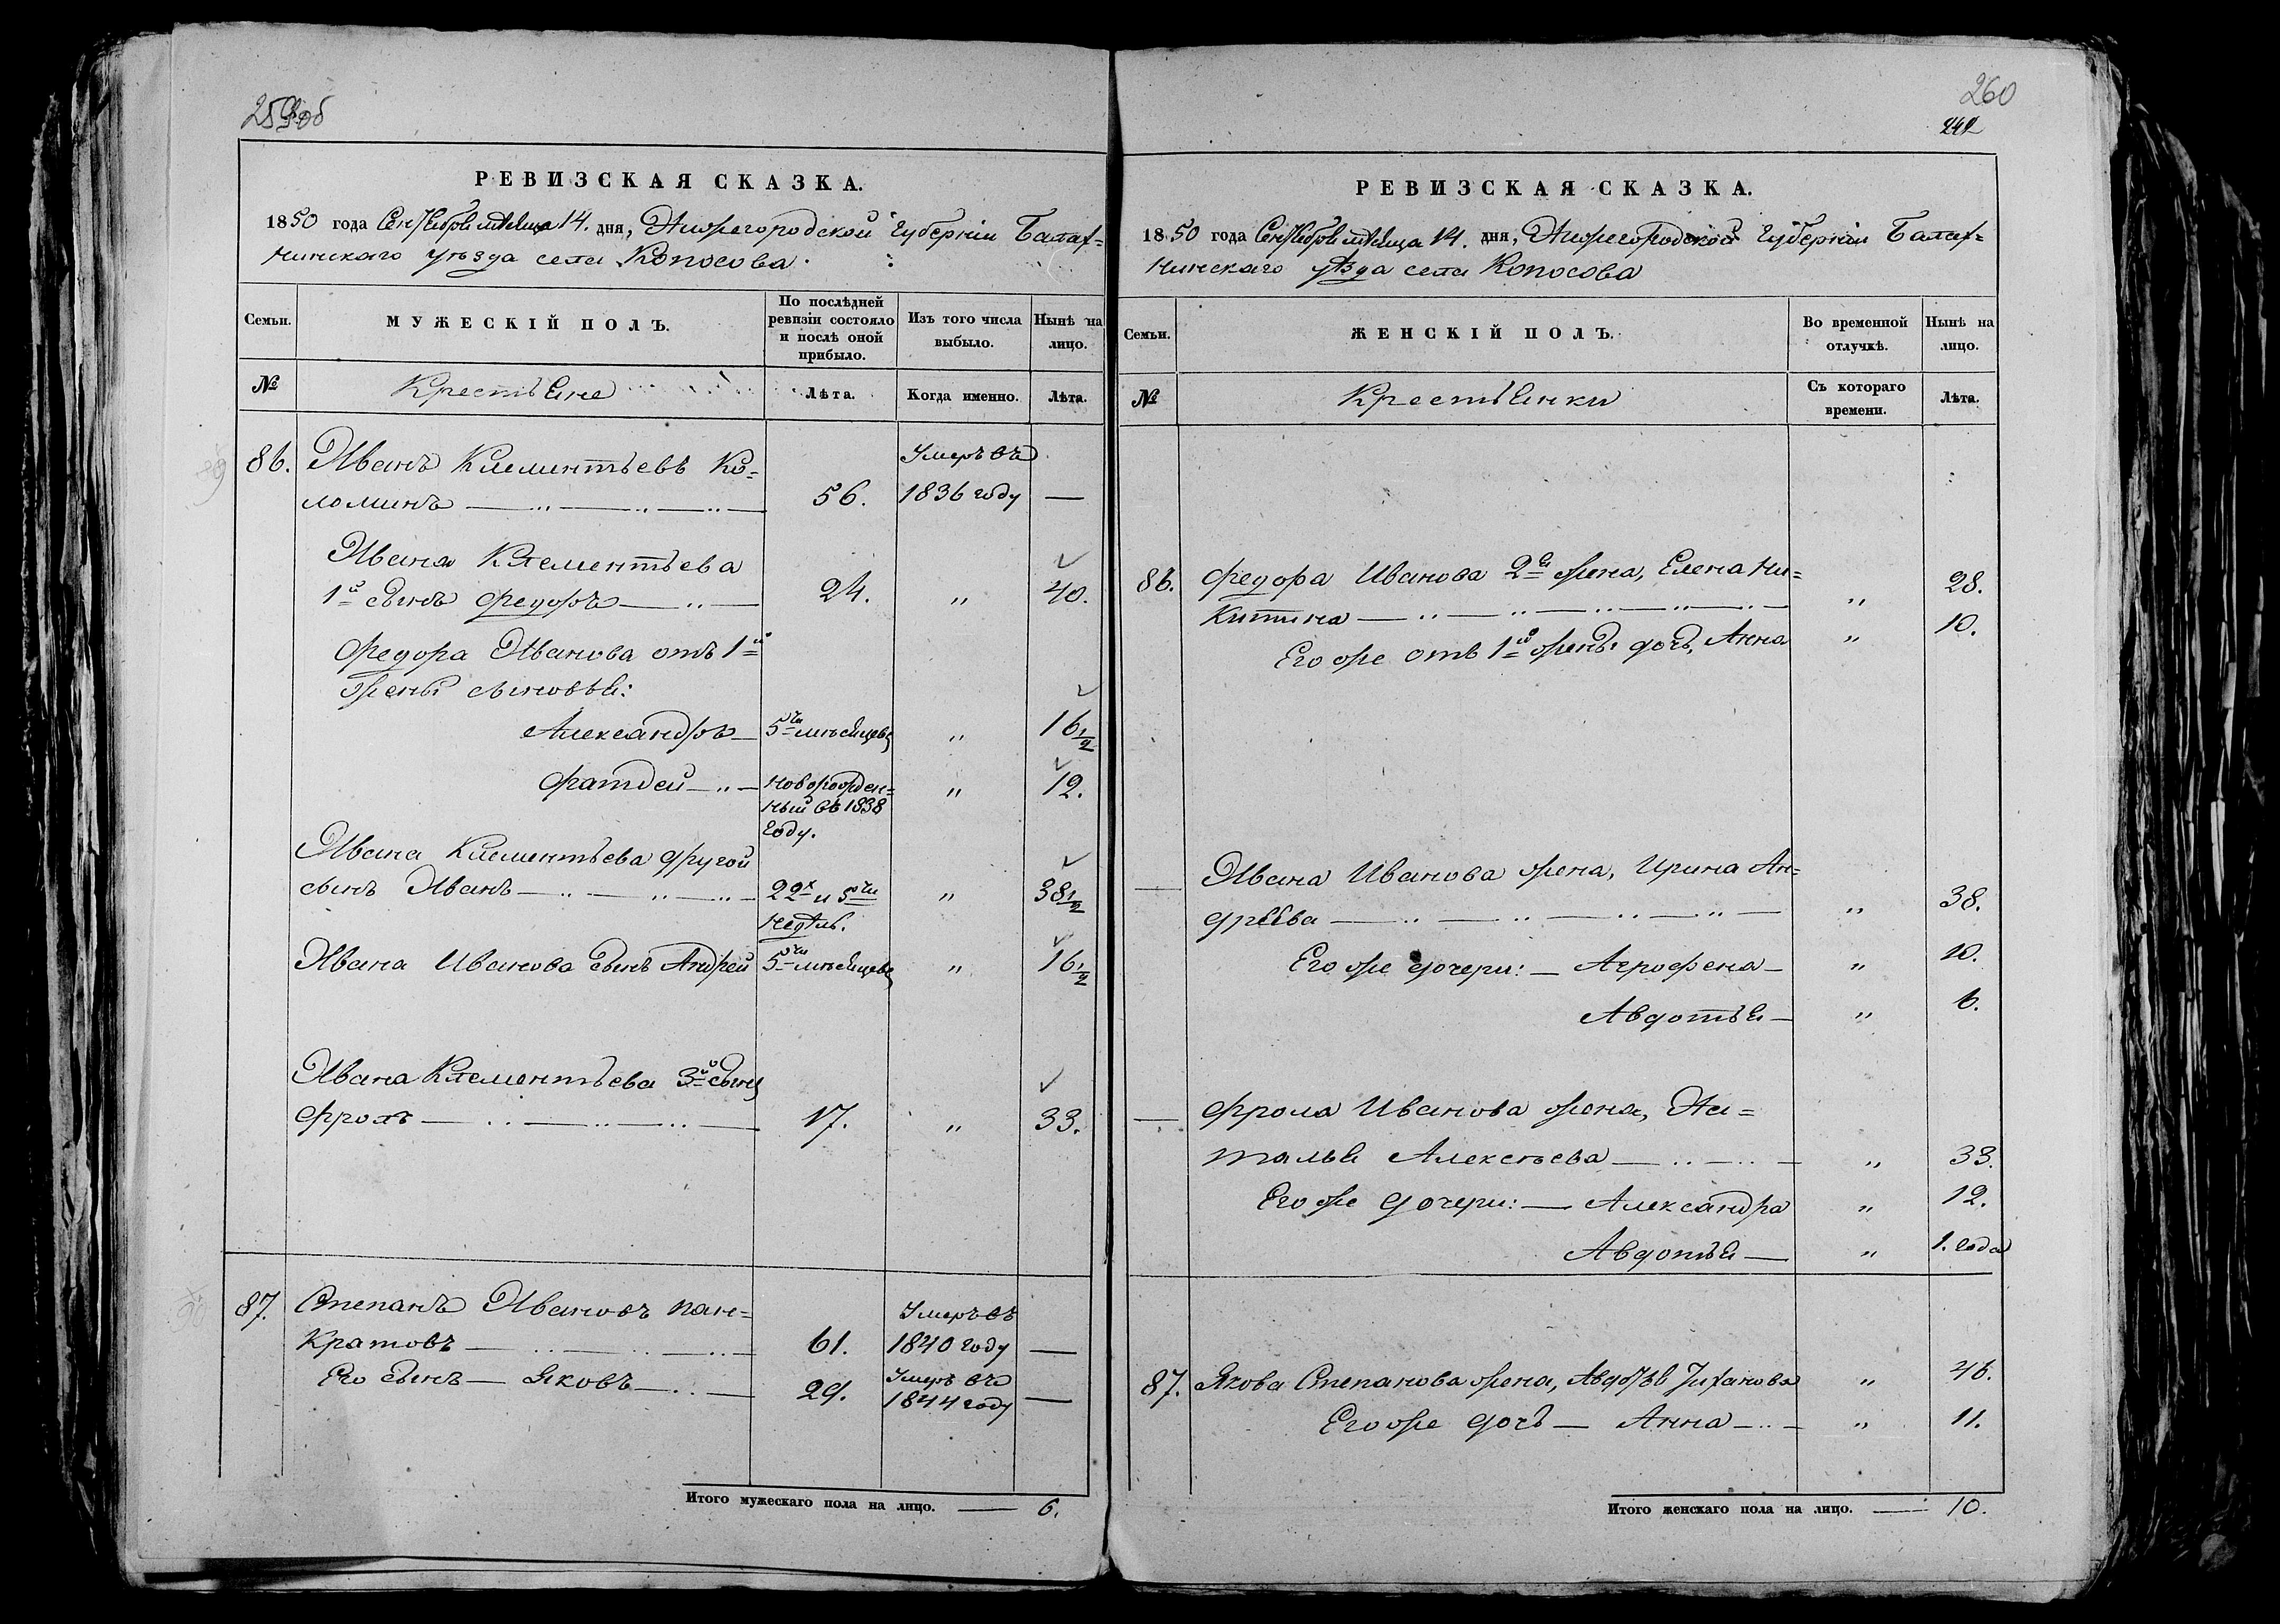 259об
РЕВИЗСКАЯ СКАЗКА.
1850 года Сентября месяца 14. дня, Нижегородской Губернии Балах=
нинскаго уѣзда села Копосова.
Семьи.
МУЖЕСКІЙ ПОЛЪ.
По послѣдней
ревизіи состояло
и послѣ оной
прибыло.
Изъ того числа
выбыло.
Нынѣ на
лицо.
№
Крестьяне
Лѣта.
Когда именно.
Лѣта.
86. Иванъ Клементьевъ Ко=
ломинъ 56. Умеръ въ 1836 году —
Ивана Клементьева
1й сынъ Федоръ 24. " 40.
Федора Иванова отъ 1й
жены сыновья:
Александръ 5ти мѣсяцевъ " 16 1/2
Фатдей новорожден=
ный въ 1838
году. " 12.
Ивана Клементьева другой
сынъ Иванъ 22х и 5ти
недѣль. " 38 1/2
Ивана Иванова сынъ Андрей 5ти мѣсяцевъ " 16 1/2
Ивана Клементьева 3й сынъ
Фролъ 17. " 33.
87. Степанъ Ивановъ Пан=
кратовъ 61. Умеръ въ 1840 году —
Его сынъ — Яковъ 29. Умеръ въ 1844 году —
Итого мужескаго пола на лицо. — 6.
260
242
РЕВИЗСКАЯ СКАЗКА.
1850 года Сентября месяца 14. дня, Нижегородской Губерніи Балах=
нинскаго уѣзда села Копосова
Семьи.
ЖЕНСКІЙ ПОЛЪ.
Во временной
отлучкѣ.
Нынѣ на
лицо.
№
Крестьянки
Съ котораго
времени.
Лѣта.
86. Федора Иванова 2я жена, Елена Ни=
китина " 28.
Его же отъ 1й жены дочь, Анна " 10.
Ивана Иванова жена, Ирина Ан=
дреева " 38.
Его же дочери: — Агрофена — " 10.
Авдотья — " 6.
Фрола Иванова жена, На=
талья Алексѣева " 33.
Его же дочери: — Александра " 12.
Авдотья — " 1. года
87. Якова Степанова жена, Авдотья Титанова " 46.
Его же дочь — Анна " 11.
Итого женскаго пола на лицо. — 10.